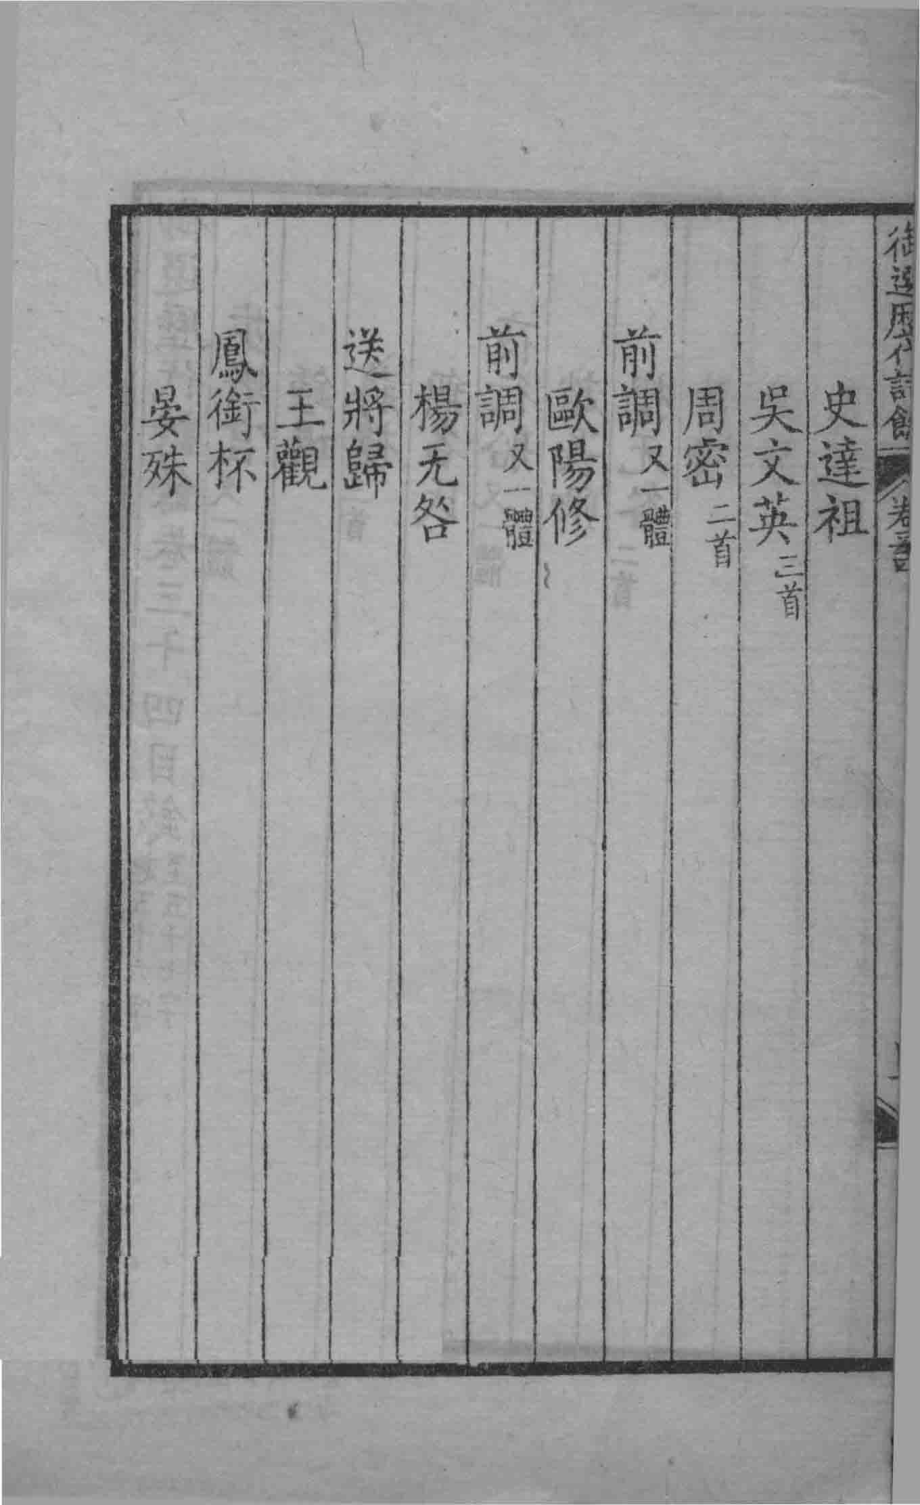 御選歷代詩餘 卷三十四
史達祖
吳文英三首
周密二首
前調又一體
歐陽修
前調又一體
楊无咎
送將歸
王觀
鳳銜杯
晏殊